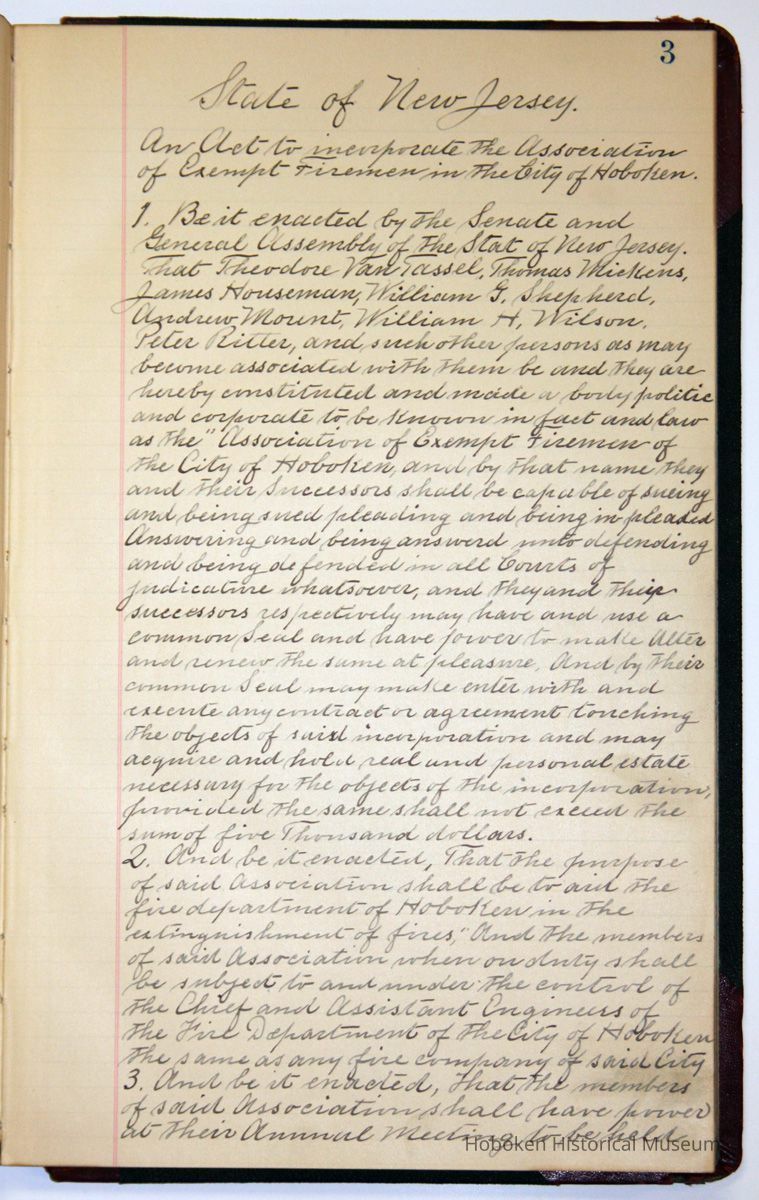 3
State of New Jersey.
An Act to incorporate the Association
of Exempt Firemen in the City of Hoboken.
1. Be it enacted by the Senate and
General Assembly of the Stat of New Jersey.
That Theodore Van Tassel, Thomas Mickens,
James Houseman, William G. Shepherd,
Andrew Mount, William H. Wilson.
Peter Ritter, and such other persons as may
become associated with them be and they are
hereby constituted and made a body politic
and corporate to be known in fact and law
as the "Association of Exempt Firemen of
the City of Hoboken, and by that name they
and their Successors shall be capable of sueing
and being sued pleading and being in pleaded
Answering and being answerd unto defending
and being defended in all Courts of
judicature whatsoever, and they and their
successors respectively may have and use a
common Seal and have power to make Alter
and renew the same at pleasure. And by their
common Seal may make enter with and
execute any contract or agreement touching
the objects of said incorporation and may
acquire and hold real and personal estate
necessary for the objects of the incorporation,
provided the same shall not exceed the
sum of five Thousand dollars.
2. And be it enacted, That the purpose
of said Association shall be to aid the
fire department of Hoboken in the
extinguishment of fires," And the members
of said Association when on duty shall
be subject to and under the control of
the Chief and Assistant Engineers of
the Fire Department of the City of Hoboken
the same as any fire company of said City
3. And be it enacted, that the members
of said Association shall have power
at their Annual Meeting to be held
Hoboken Historical Museum